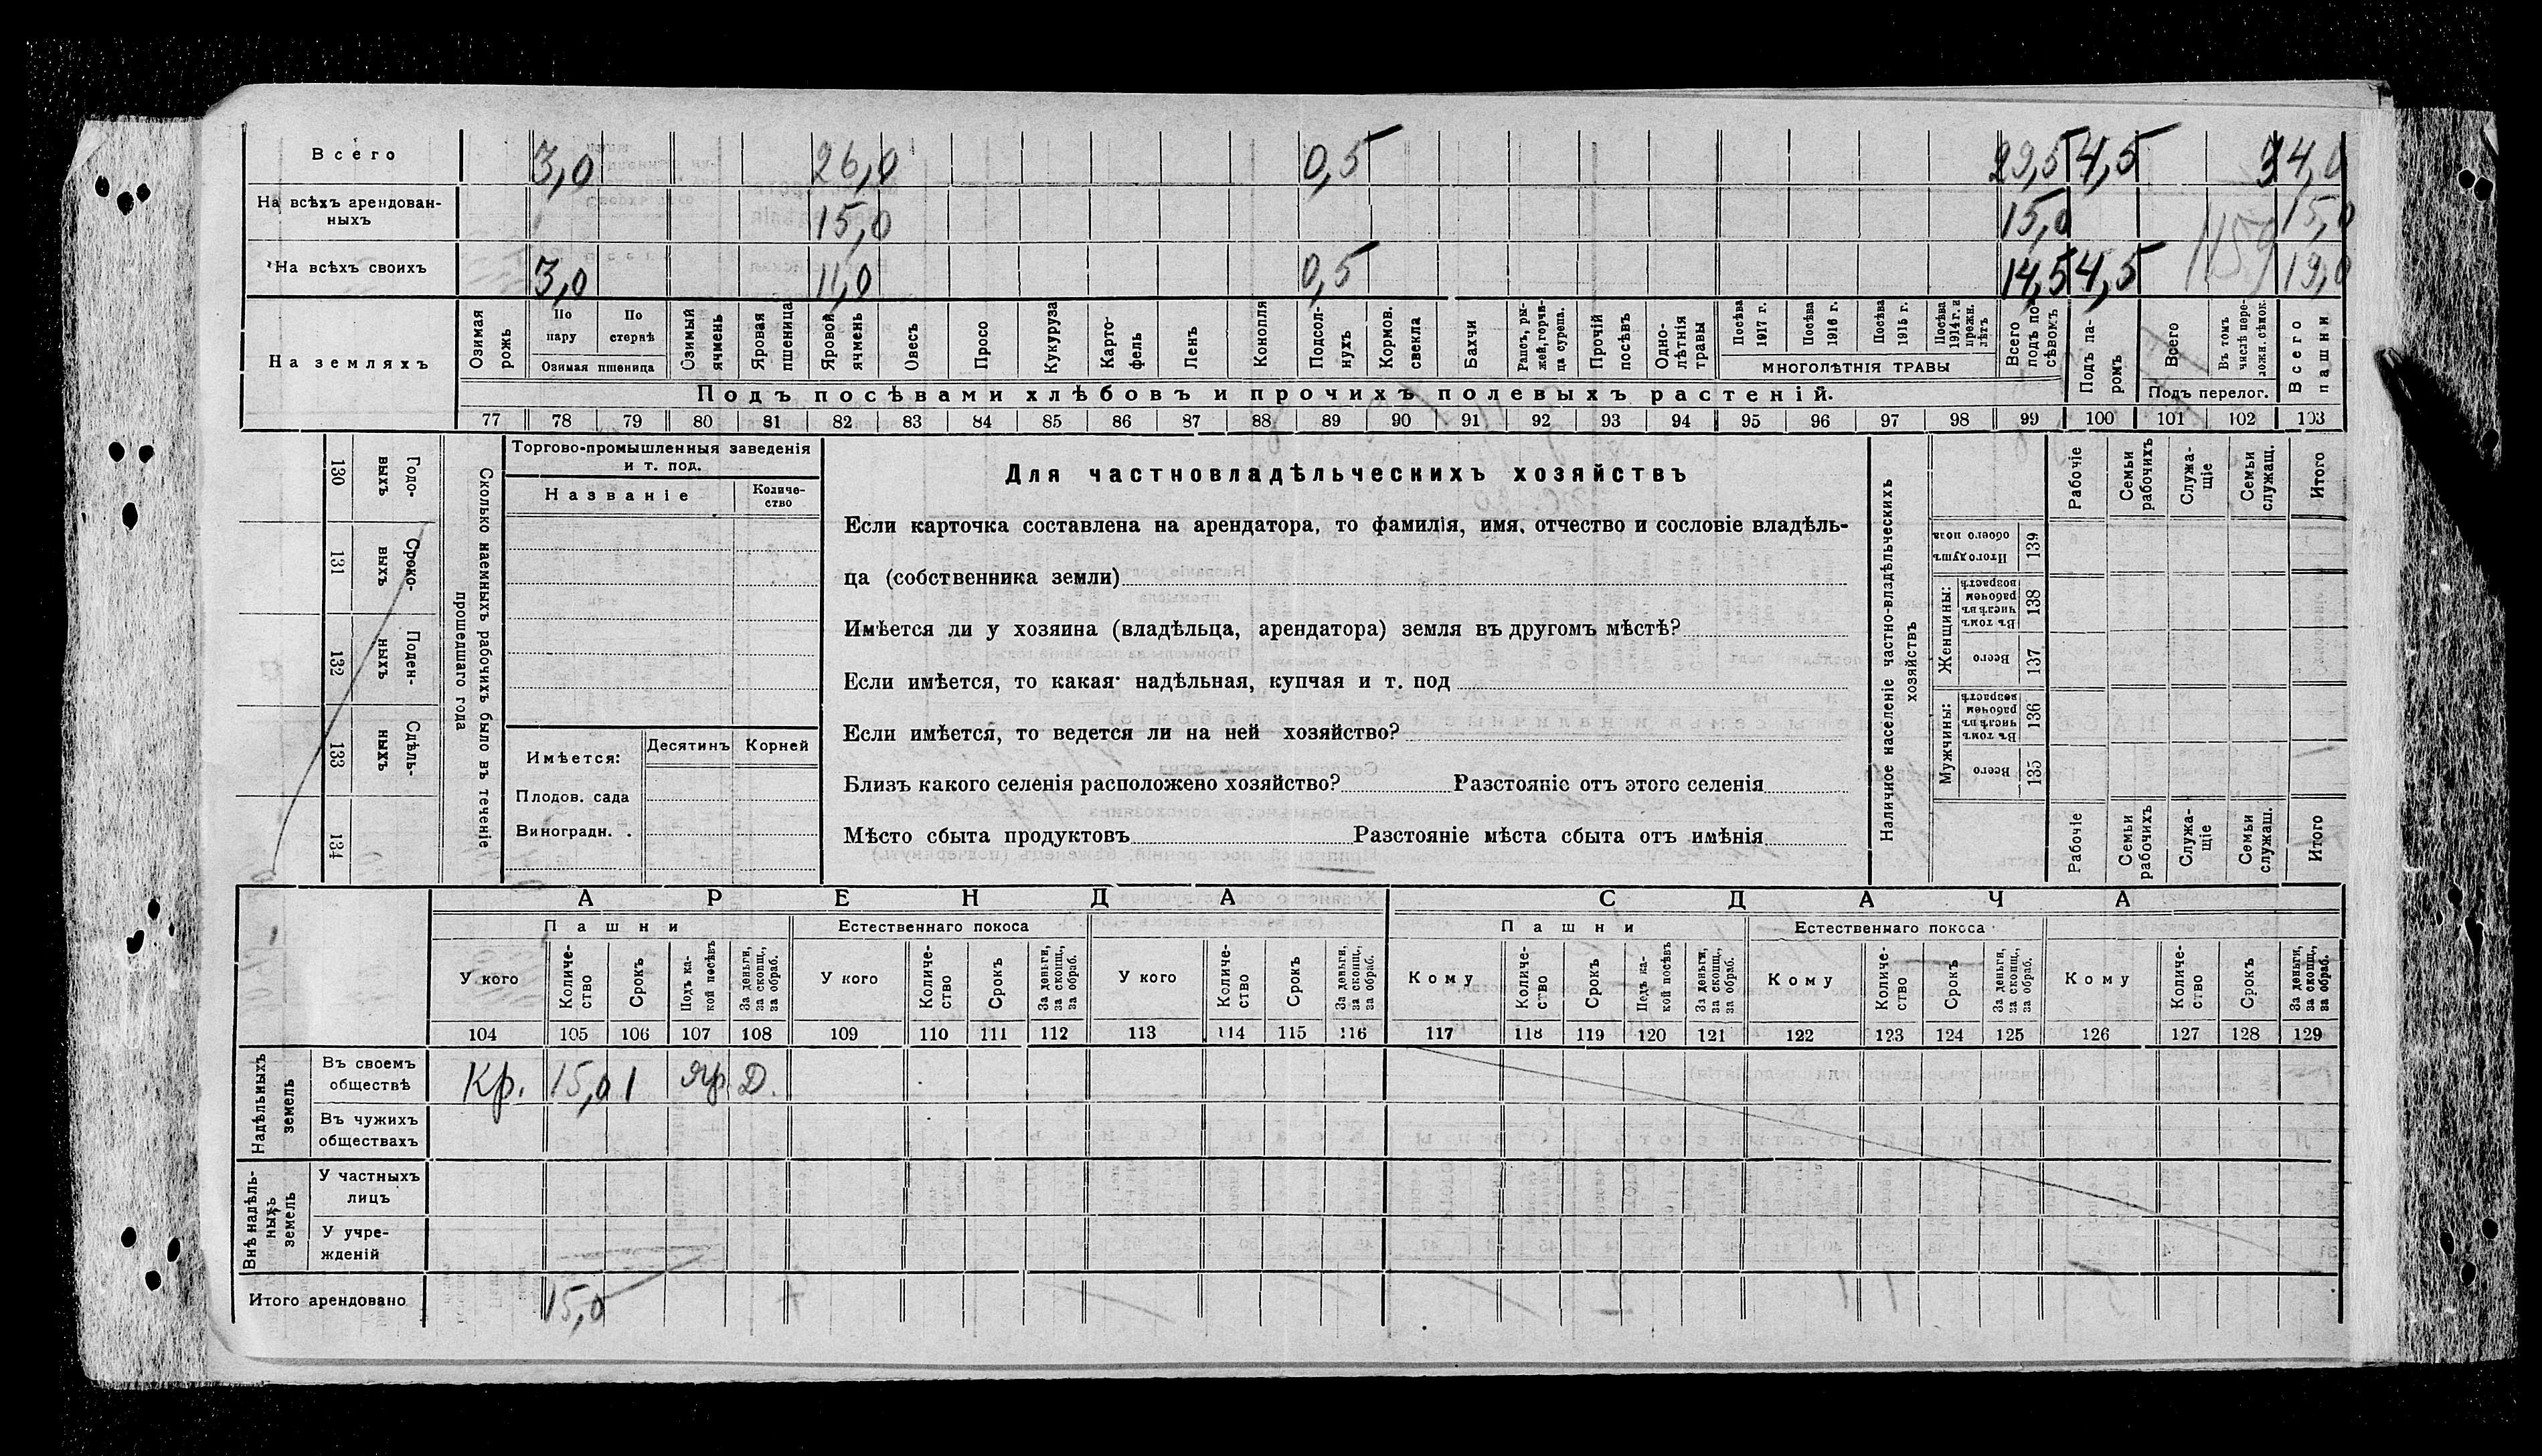 Всего 3,0 26,0 0,5 29,5 4,5 34,0
На всѣхъ арендован-
ныхъ 15,0 15,0 15,0
На всѣхъ своихъ 3,0 11,0 0,5 14,5 4,5 19,0
1159
На земляхъ
Озимая рожь
По пару
По стернѣ
Озимая пшеница
Озимый ячмень
Яровая пшеница
Яровой ячмень
Овесъ
Просо
Кукуруза
Карто-
фель
Ленъ
Конопля
Подсол-
нухъ
Кормов.
свекла
Бахчи
Рапсъ, ры-
жей, горчи-
ца сурепа.
Прочій посѣвъ
Одно-
лѣтнія травы
Посѣва 1917 г.
Посѣва 1916 г.
Посѣва 1915 г.
Посѣва 1914 г. и прежн. лѣтъ
МНОГОЛѢТНІЯ ТРАВЫ
Всего подъ по-
сѣвомъ
Подъ па-
ромъ
Всего
Въ томъ числѣ пере-
ложн. сѣнок.
Подъ перелог.
Всего пашни
Подъ посѣвами хлѣбовъ и прочихъ полевыхъ растеній.
77 78 79 80 81 82 83 84 85 86 87 88 89 90 91 92 93 94 95 96 97 98 99 100 101 102 103
130 Годо-
выхъ
131 Сроко-
выхъ
132 Поден-
ныхъ
133 Сдѣль-
ныхъ
134
Сколько наемныхъ рабочихъ было въ теченіе
прошедшаго года
Торгово-промышленныя заведенія
и т. под.
Названіе
Количе-
ство
Имѣется:
Десятинъ Корней
Плодов. сада
Виноградн. .
Для частновладѣльческихъ хозяйствъ
Если карточка составлена на арендатора, то фамилія, имя, отчество и сословіе владѣль-
ца (собственника земли)
Имѣется ли у хозяина (владѣльца, арендатора) земля въ другомъ мѣстѣ?
Если имѣется, то какая· надѣльная, купчая и т. под
Если имѣется, то ведется ли на ней хозяйство?
Близъ какого селенія расположено хозяйство? Разстояніе отъ этого селенія
Мѣсто сбыта продуктовъ Разстояніе мѣста сбыта отъ имѣнія
Наличное населеніе частно-владѣльческихъ
хозяйствъ
Рабочіе
Семьи рабочихъ
Служа-
щіе
Семьи служащ.
Итого
Итого душъ обоего пола 139
Женщины:
Въ томъ числѣ въ рабочем возрастѣ 138
Всего 137
Мужчины:
Въ томъ числѣ въ рабочем возрастѣ 136
Всего 135
Рабочіе
Семьи рабочихъ
Служа-
щіе
Семьи служащ.
Итого
АРЕНДА СДАЧА
Пашни Естественнаго покоса Пашни Естественнаго покоса
У кого
Количе-
ство
Срокъ
Подъ ка-
кой посѣвъ
За деньги, за скопщ., за обраб.
У кого
Количе-
ство
Срокъ
За деньги, за скопщ., за обраб.
У кого
Количе-
ство
Срокъ
За деньги, за скопщ., за обраб.
Кому
Количе-
ство
Срокъ
Подъ ка-
кой посѣвъ
За деньги, за скопщ., за обраб.
Кому
Количе-
ство
Срокъ
За деньги, за скопщ., за обраб.
Кому
Количе-
ство
Срокъ
За деньги, за скопщ., за обраб.
104 105 106 107 108 109 110 111 112 113 114 115 116 117 118 119 120 121 122 123 124 125 126 127 128 129
Надѣльныхъ земель
Въ своемъ
обществѣ Кр. 15,0 1 яр. Д.
Въ чужихъ
обществахъ
Внѣ надѣль-
ныхъ земель
У частныхъ
лицъ
У учре-
жденій
Итого арендовано 15,0